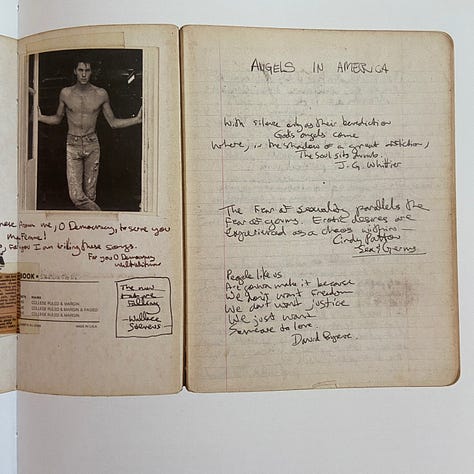 these from me, O Democracy, to serve you
ma femme!
for you I am trilling these songs.
For you O Democracy
Walt Whitman
BOOK
COLLEGE RULED & MARGIN
COLLEGE RULED & MARGIN
MADE IN U.S.A.
The
Fallacy
—Wallace
Stevens
ANGELS IN AMERICA
With silence only as their benediction
Gods angels come
Where, in the shadow of a great affliction,
The Soul sits dumb.
J. G. Whittier
The Fear of sexuality parallels the
Fear of germs. Erotic desires are
experienced as a chaos within—
Cindy Patton
Sex & Germs
People like us
Are gonna make it because
We don't want freedom
We dont want justice
We just want
Someone to love.
David Byrne.